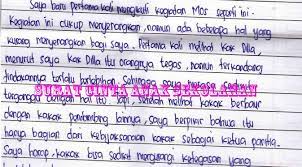 Saya baru pertama kali mengikuti kegiatan MOS seperti ini.
Kegiatan ini cukup menyenangkan, namun ada beberapa hal yang
kurang menyenangkan bagi saya. Pertama kali melihat Kak Dilla,
menurut saya Kak Dilla itu orangnya tegas, namun terkandang
tindakannya terlalu berlebihan. Sehingga saya
SURAT CINTA ANAK SEKOLAHAN
dengan hal itu. Tapi, setelah melihat kakak berbaur
dengan kakak pembimbing lainnya, saya berpikir bahwa itu
hanya bagian dari kebijaksanaan kakak sebagai ketua panitia.
Saya harap, kakak bisa sedikit mengurangi ketegasan yang